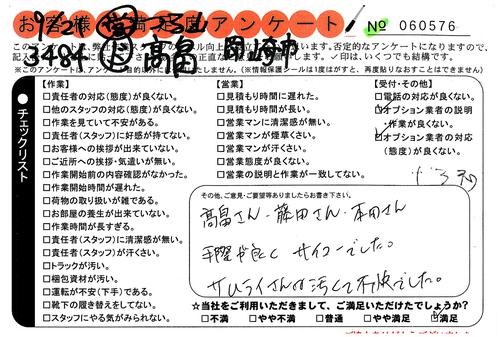 お客様満足度アンケート
№ 060576
3484
高畠
岡崎市
このアンケートは、弊社
※このアンケートは、
(※情報保護シールは1度がすと、再度貼りなおすことはできません
✓印は、いくつでも結構です。
チェックリスト
【作業】
□責任者の対応(態度)が良くない。
□他のスタッフの対応(態度)が良くない。
□作業を見ていて不安がある。
□責任者(スタッフ)に好感が持てない。
□お客様への挨拶が出来ていない。
□ご近所への挨拶・気遣いが無い。
□作業開始前の内容確認がなかった。
□作業開始時間が遅れた。
□荷物の取り扱いが雑である。
□お部屋の養生が出来ていない。
□作業時間が長すぎる。
□責任者(スタッフ)に清潔感が無い。
□責任者(スタッフ)が汗くさい。
□トラックが汚い。
□梱包資材が汚い。
□運転が不安(下手)である。
□靴下の履き替えをしてない。
□スタッフにやる気がみられない。
【営業】
□見積もり時間に遅れた。
□見積もり時間が長い。
□営業マンに清潔感が無い。
□営業マンが煙草くさい。
□営業マンが汗くさい。
□営業態度が良くない。
□営業の説明と作業が一致してない。
【受付・その他】
□電話の対応が良くない。
☑オプション業者の説明
・作業が良くない。
☑オプション業者の対応
(態度)が良くない。
その他、ご意見・ご要望等ありましたらお書き下さい。
高畠さん・藤田さん・本田さん
手際が良く サイコーでした。
サムライさんは汚くて不快でした。
☆当社をご利用いただきまして、ご満足いただけたでしょうか?
□不満 □やや不満 □普通 □やや満足 ☑満足